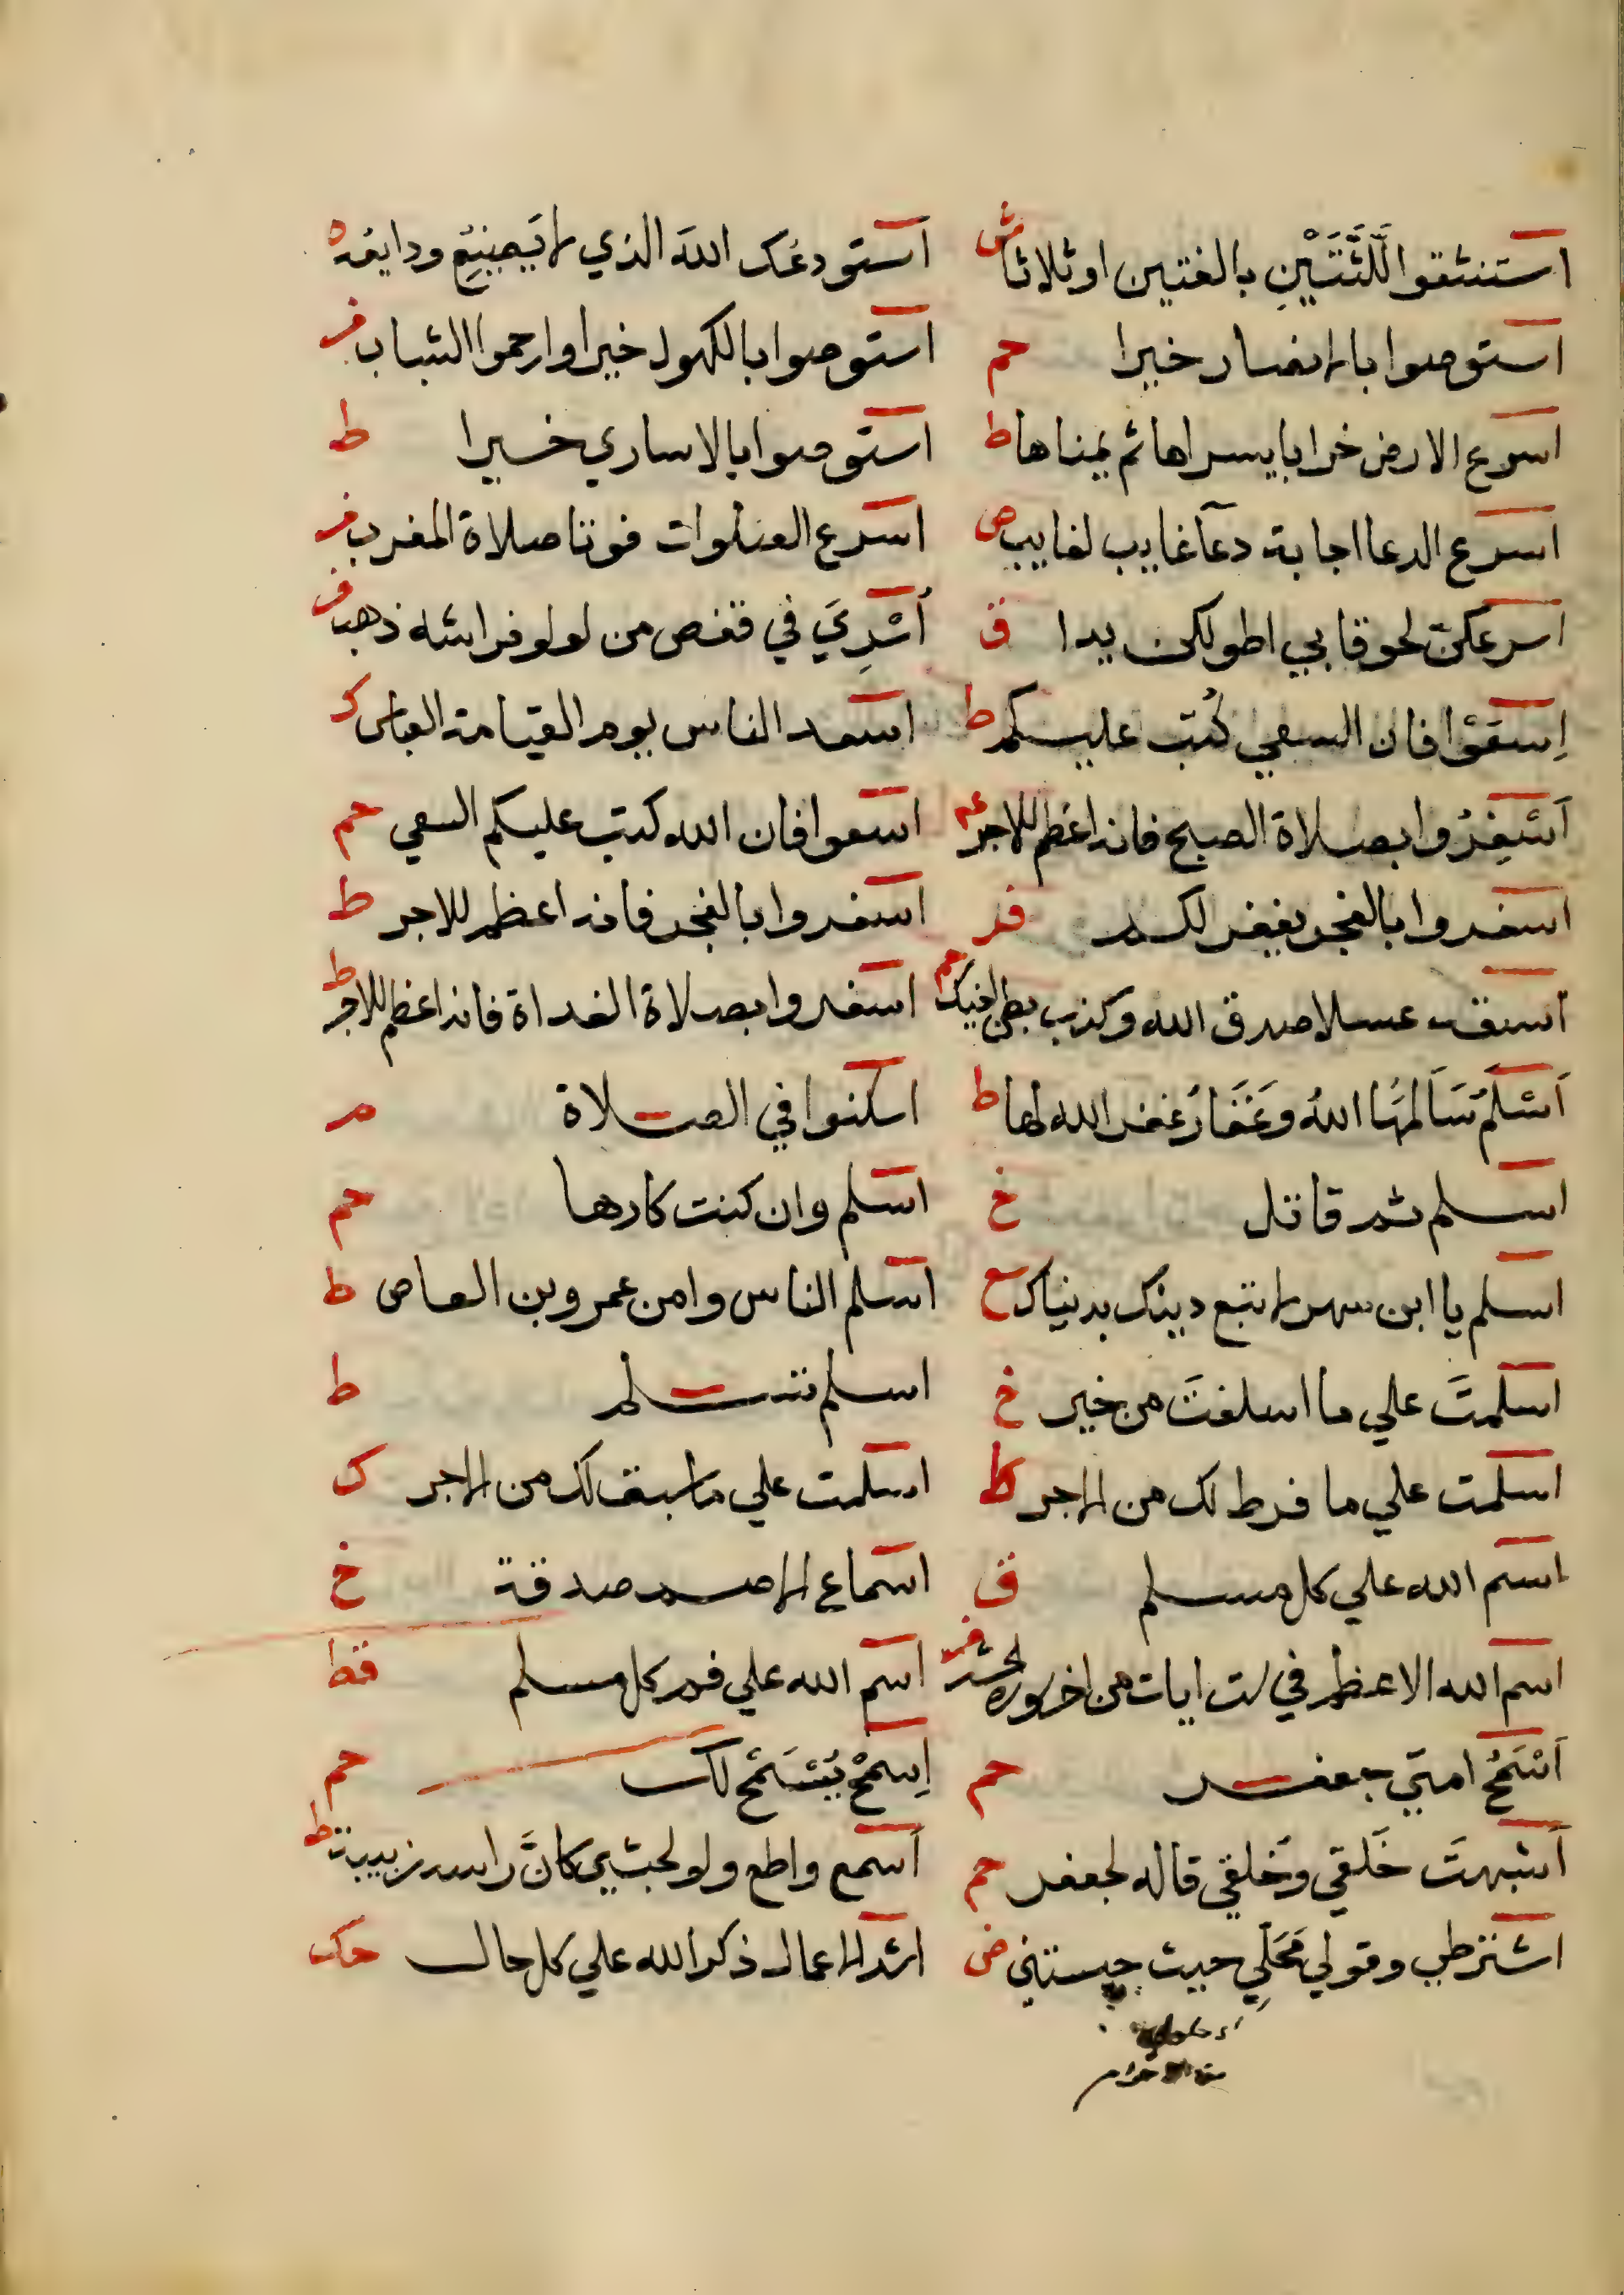 استنثقوا اللَّثَّتَيْنِ بالغتين او ثلاثا ش
استودعك الله الذي لا يضيع ودايعه ه
استوصوا بالانصار خيرا حم
استوصوا بالكهول خيرا وارحموا الشباب فر
اسرع الارض خرابا يسراها ثم يمناها ط
استوصوا بالاساري خيرا ط
اسرع الدعا اجابة دعآ غايب لغايب ص
اسرع الصلوات فوتا صلاة المغرب فر
اسرعكن لحوقا بي اطولكن يدا ق
أُسْرِيَ في قفص من لولو فراشه ذهب ف
اِسعَوْا فان السعي كُتب عليكم ط
اسعد الناس يوم القيامة العباس كر
اَسْفِرُوا بصلاة الصبح فانه اعظم للاجر عم
اسعوا فان الله كتب عليكم السعي حم
اسفروا بالفجر يغفر لكم فر
اسفروا بالفجر فانه اعظم للاجر ط
اسقه عسلا صدق الله وكذب بطن اخيك حم
اسفروا بصلاة الغداة فانه اعظم للاجر ط
اَسْلَمُ سَالَمَهَا اللهُ وَغِفَارُ غفر الله لها ط
اسكنوا في الصلاة م
اسلم ثم قاتل خ
اسلم وان كنت كارها حم
اسلم يا ابن سهر لا تبع دينك بدنياك سع
اسلم الناس وامن عمرو بن العاص ط
اسلمتَ علي ما اسلفتَ من خير خ
اسلم تسلم ط
اسلمت علي ما فرط لك من الاجر كط
اسلمت علي ما سبق لك من الاجر ك
اسم الله علي كل مسلم ق
اسماع الاصم صدقة خ
اسم الله الاعظم في ست ايات من اخر سورة الحشر فر
اسم الله علي فم كل مسلم قط
اَسْمَحُ امتي جعفر حم
اِسمَحْ يُسْمَحْ لك حم
اَشبهتَ خَلقي وخُلقي قاله لجعفر حم
اسمع واطع ولو لحبشي كانَّ راسه زبيبة ط
اشترطي وقولي مَحَلِّي حيث حبستني ض
اشد الاعمال ذكر الله علي كل حال حك